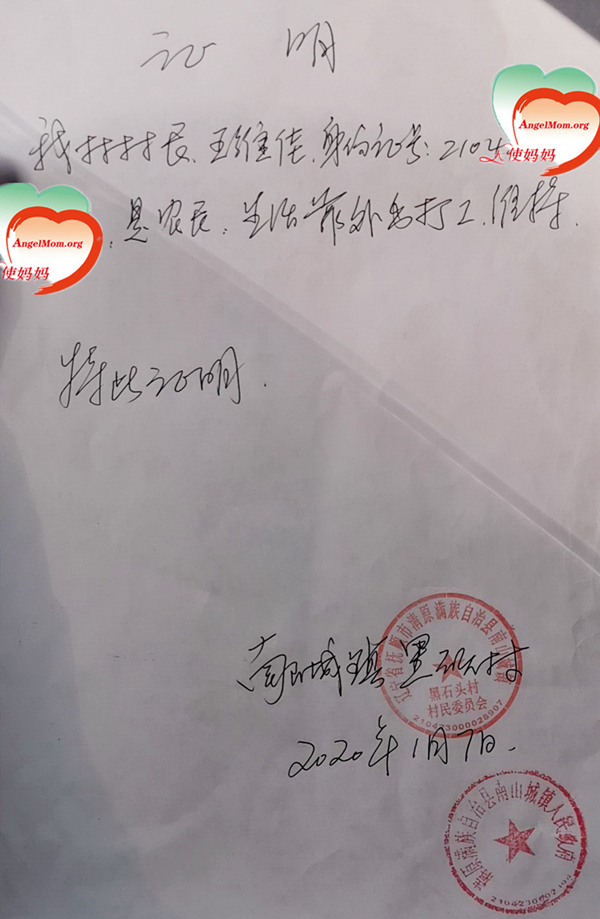 证 明
AngelMom.org
天使妈妈
我村村民、王维佳、身份证号:2104
AngelMom.org
使妈妈
是农民,生活靠外出打工维持.
特此证明.
辽宁省抚顺市清原满族自治县南山城镇
南山城镇黑石头村
黑石头村
村民委员会
210423000026907
2020年1月7日.
清原满族自治县南山城镇人民政府